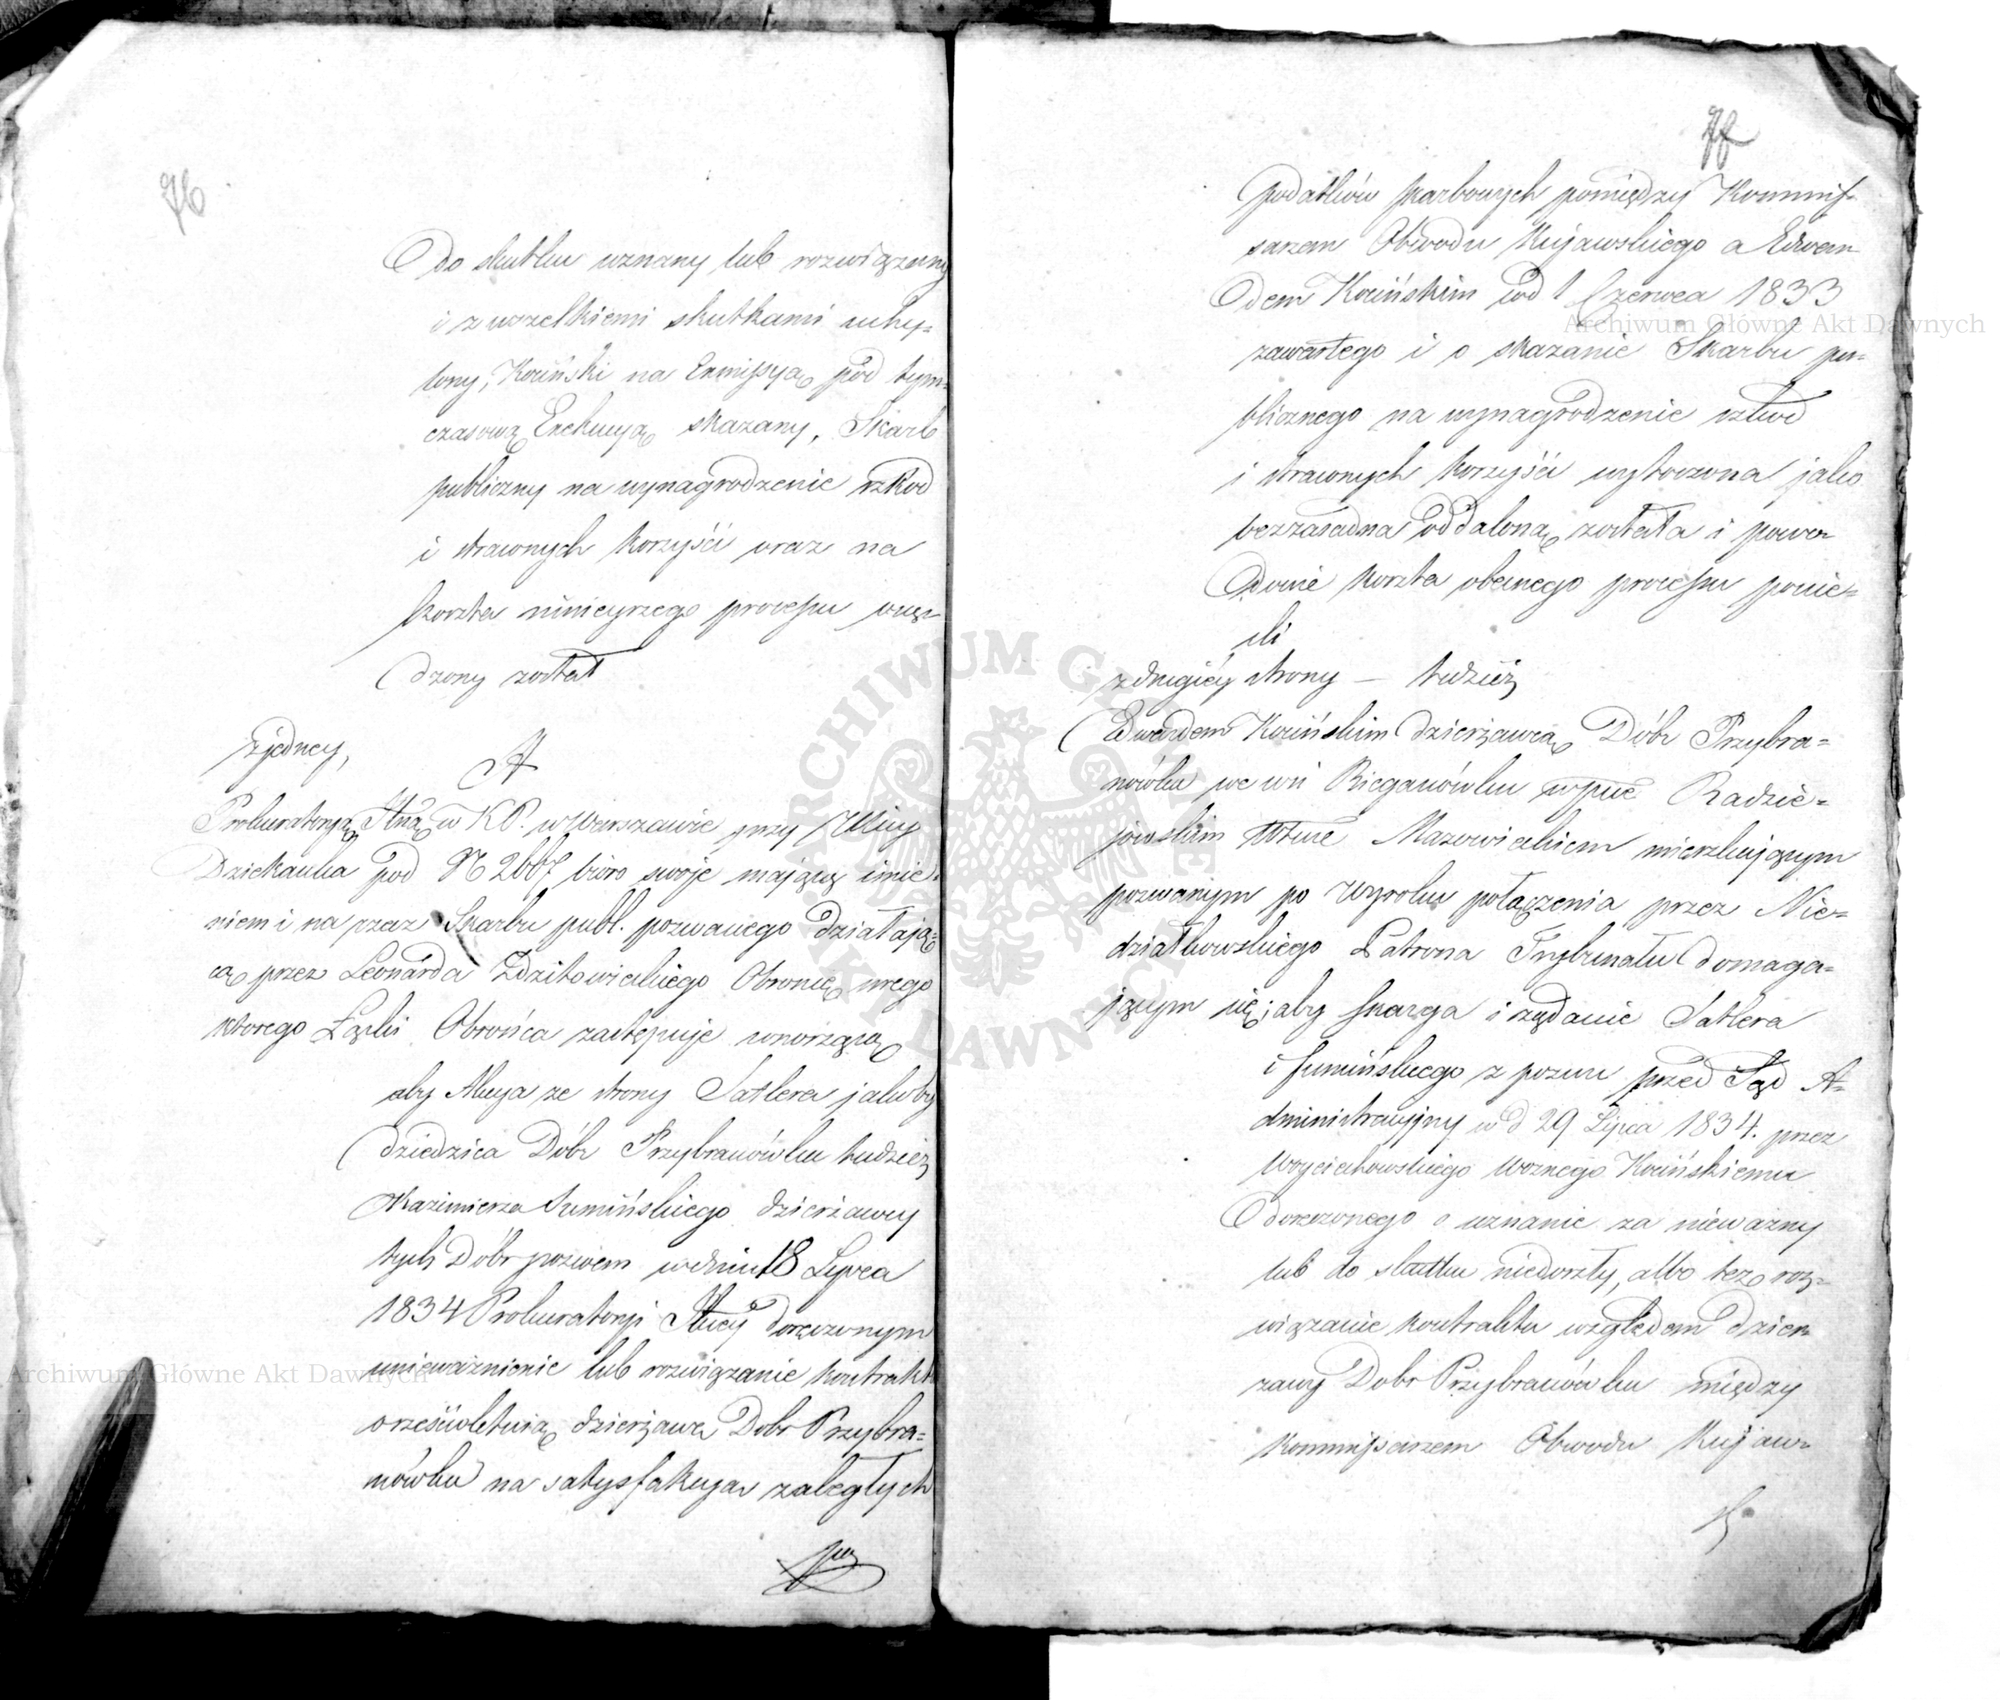 76
do skutku uznany lub rozwiązany
i z wszelkiemi skutkami uchy-
lony, Kociński na Exmissyą pod tym-
czasową Exekucyą skazany, Skarb
publiczny na wynagrodzenie szkod
i straconych korzyści oraz na
koszta ninieyszego processu wsą-
dzony został
z jedney,
A
Prokuratoryą w K.P. w Warszawie przy Ulicy
Dziekanka pod N 2667 biuro swoje maiącą imie-
niem i na rzecz Skarbu publ. pozwanego działają-
cą przez Leonarda Zdzitowieckiego Obrońcę
ktorego Łąski Obrońca zastępuje wnoszącą
aby Akcya ze strony Satlera jakoby
dziedzica Dóbr Przybranówka tudzież
Kazimierza Sumińskiego dzierżawcy
tych Dóbr pozwem w dniu 18 Lipca
1834 Prokuratoryi doręczonym
unieważnienie lub rozwiązanie kontraktu
o sześcioletnią dzierżawę Dobr Przybra-
nówka na satysfakcya zaległych
podatków skarbowych pomiędzy Kommis-
sarzem Obwodu Kujawskiego a Edwar-
dem Kocińskim pod 1 Czerwca 1833
zawartego i o skazanie Skarbu pu-
blicznego na wynagrodzenie szkod
i straconych korzyści wytoczona jako
bezzasadna oddaloną została i powo-
dowie koszta obecnego processu ponie-
śli
z drugiéy strony — tudzież
Edwardem Kocińskim dzierżawcą Dóbr Przybra-
nówka we wsi Bieganówku w pcie Radzie-
jowskim Wtwie Mazowieckiem mieszkającym
pozwanym po Wyroku połączenia przez Nie-
działkowskiego Patrona Trybunału domaga-
jącym się, aby skarga i żądanie Satlera
i Sumińskiego z pozwu przed Sąd A-
dministracyjny w d 29 Lipca 1834. przez
Woyciechowskiego Woznego Kocińskiemu
doręczonego o uznanie za nieważny
lub do skutku niedoszły, albo też o roz-
wiązanie kontraktu względem dzier-
żawy Dobr Przybranówka między
Kommissarzem Obwodu Kujaw-
Archiwum Główne Akt Dawnych
Archiwum Główne Akt Dawnych
ARCHIWUM GŁÓWNE AKT DAWNYCH